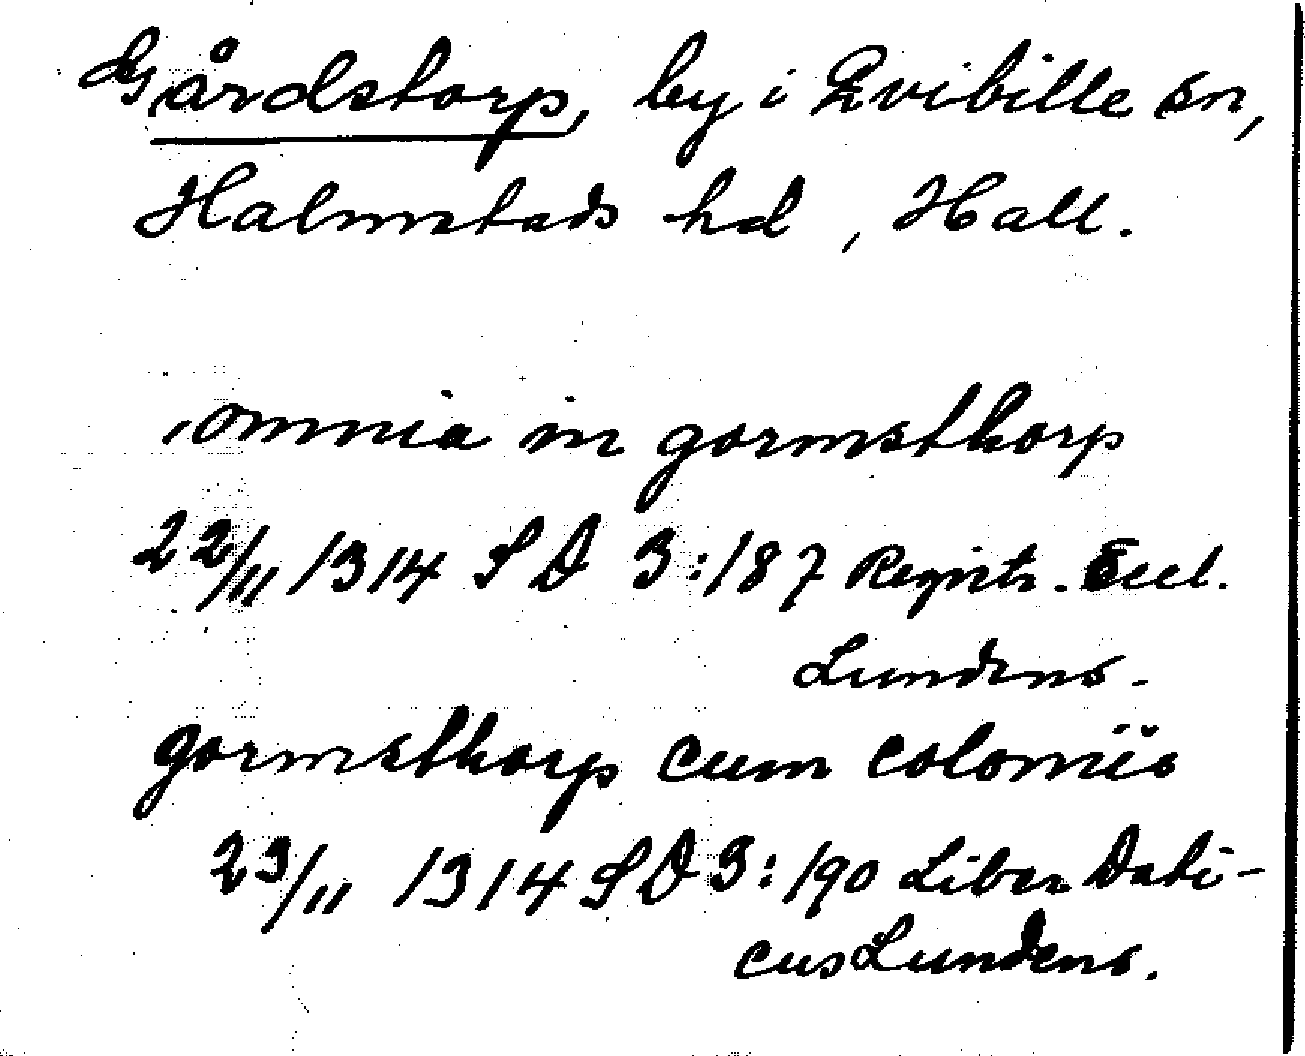 Gårdstorp, by i Qvibille sn,
Halmstads hd, Hall.
, omnia in gormsthorp
22/11 1314 SD 3:187 Registr. Eccl.
Lundens.
gormsthorp cum coloniis
23/11 1314 SD 3:190 Liber Dati-
cus Lundens.